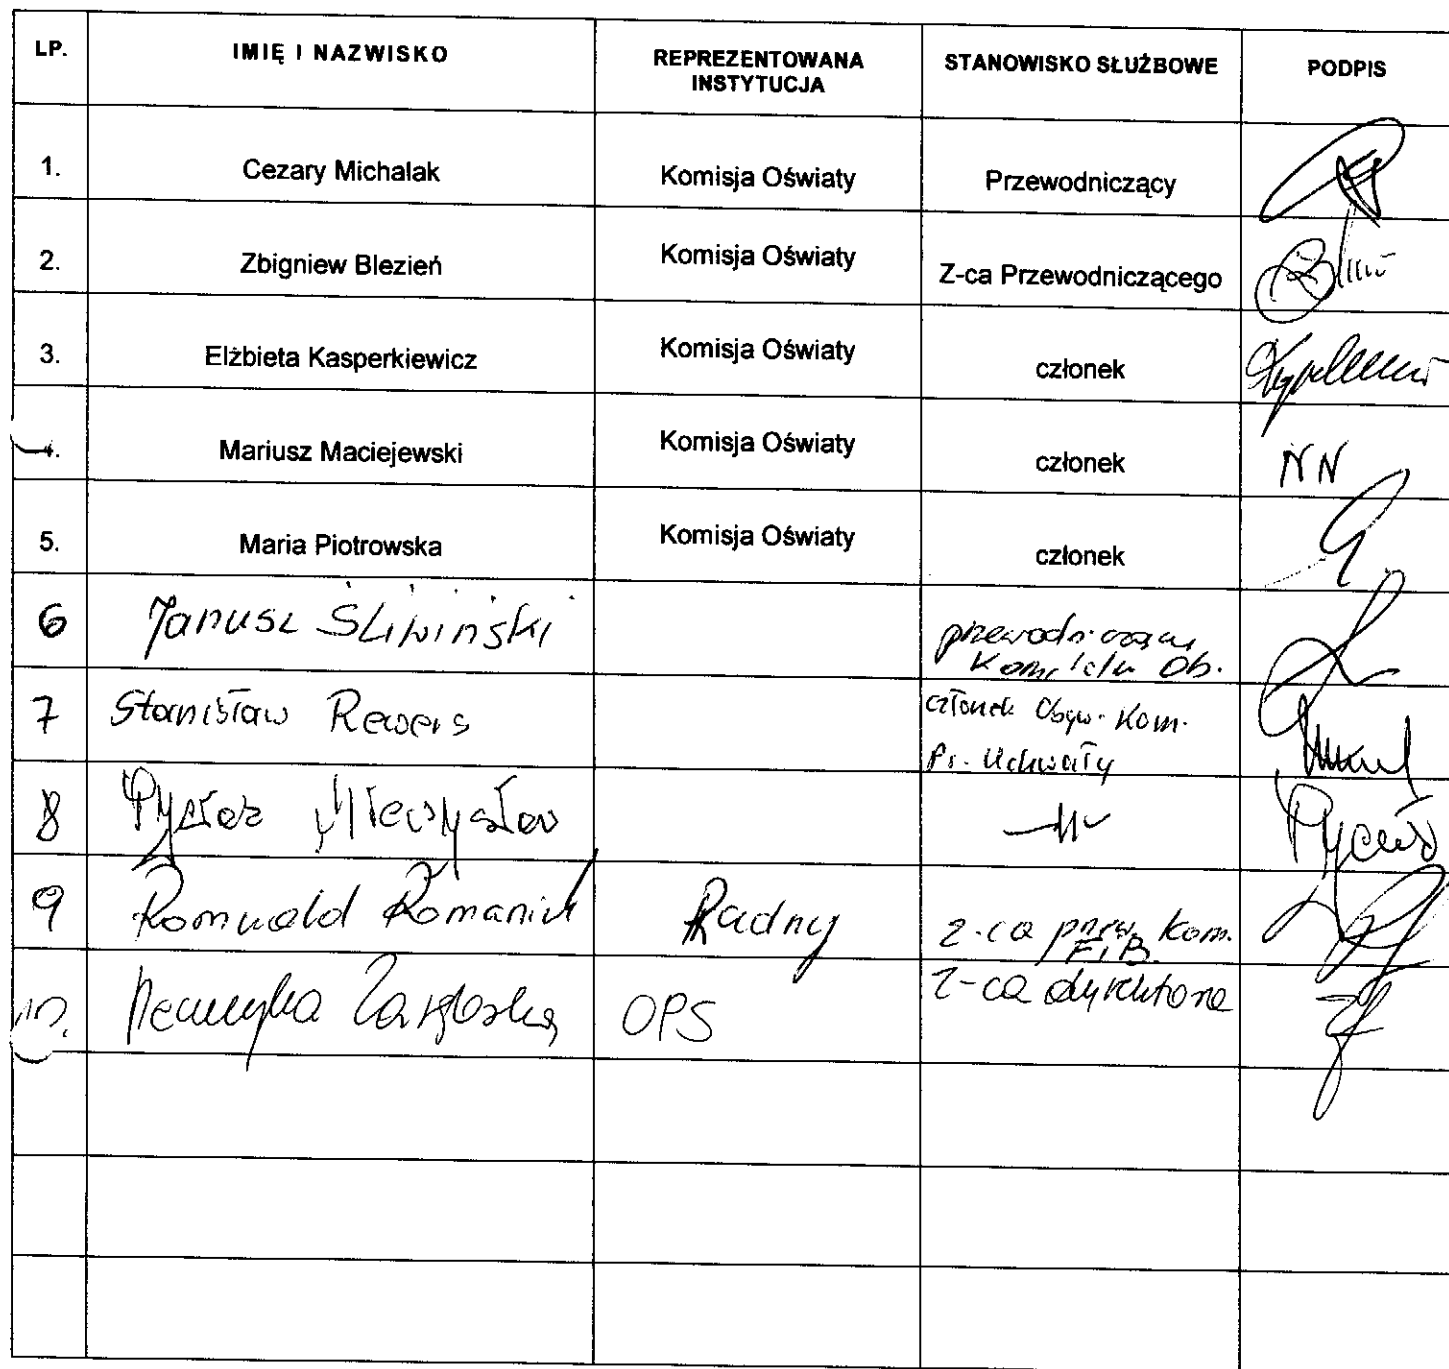 LP. IMIĘ I NAZWISKO REPREZENTOWANA INSTYTUCJA STANOWISKO SŁUŻBOWE PODPIS
1. Cezary Michalak Komisja Oświaty Przewodniczący
2. Zbigniew Blezień Komisja Oświaty Z-ca Przewodniczącego
3. Elżbieta Kasperkiewicz Komisja Oświaty członek
4. Mariusz Maciejewski Komisja Oświaty członek NN
5. Maria Piotrowska Komisja Oświaty członek
6 Janusz Śliwiński przewodniczący
Komitetu Ob.
7 Stanisław Rewers członek Obyw. Kom.
Pr. Uchwały
8 -11-
9 Romuald Radny z-ca przew. Kom.
F i B.
10. OPS z-ca dyrektora